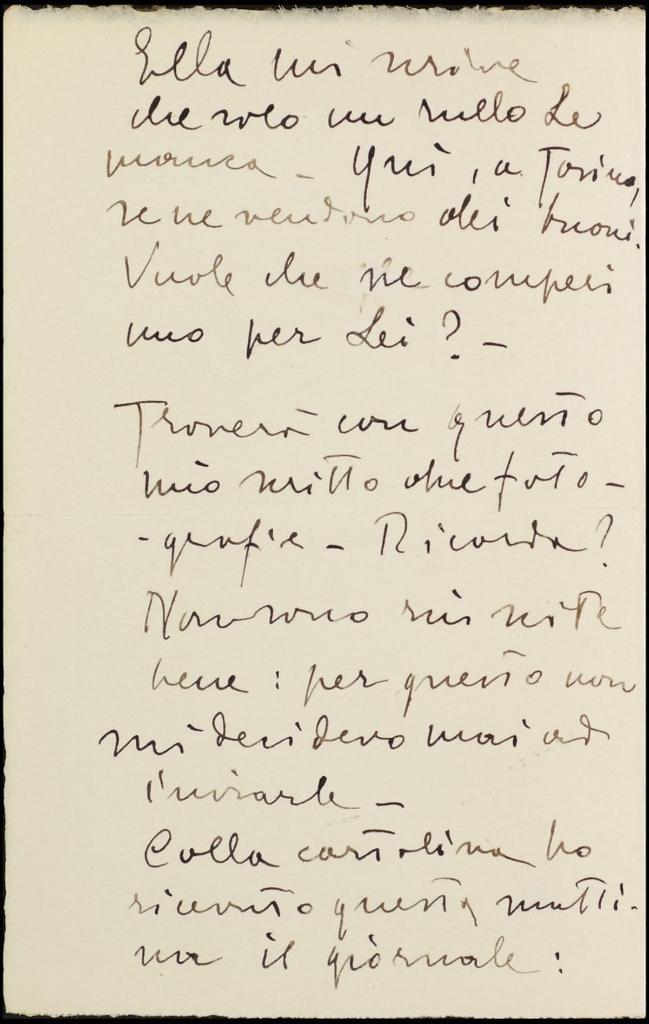 Ella mi scrive
che solo un rullo Le
manca – Qui, a Torino,
se ne vendono dei buoni.
Vuole che ne comperi
uno per Lei? –
Troverà con questo
mio scritto due foto-
-grafie – Ricorda?
Non sono riuscite
bene: per questo non
mi decidevo mai ad
inviarle –
Colla cartolina ho
ricevuto questa matti-
na il giornale: